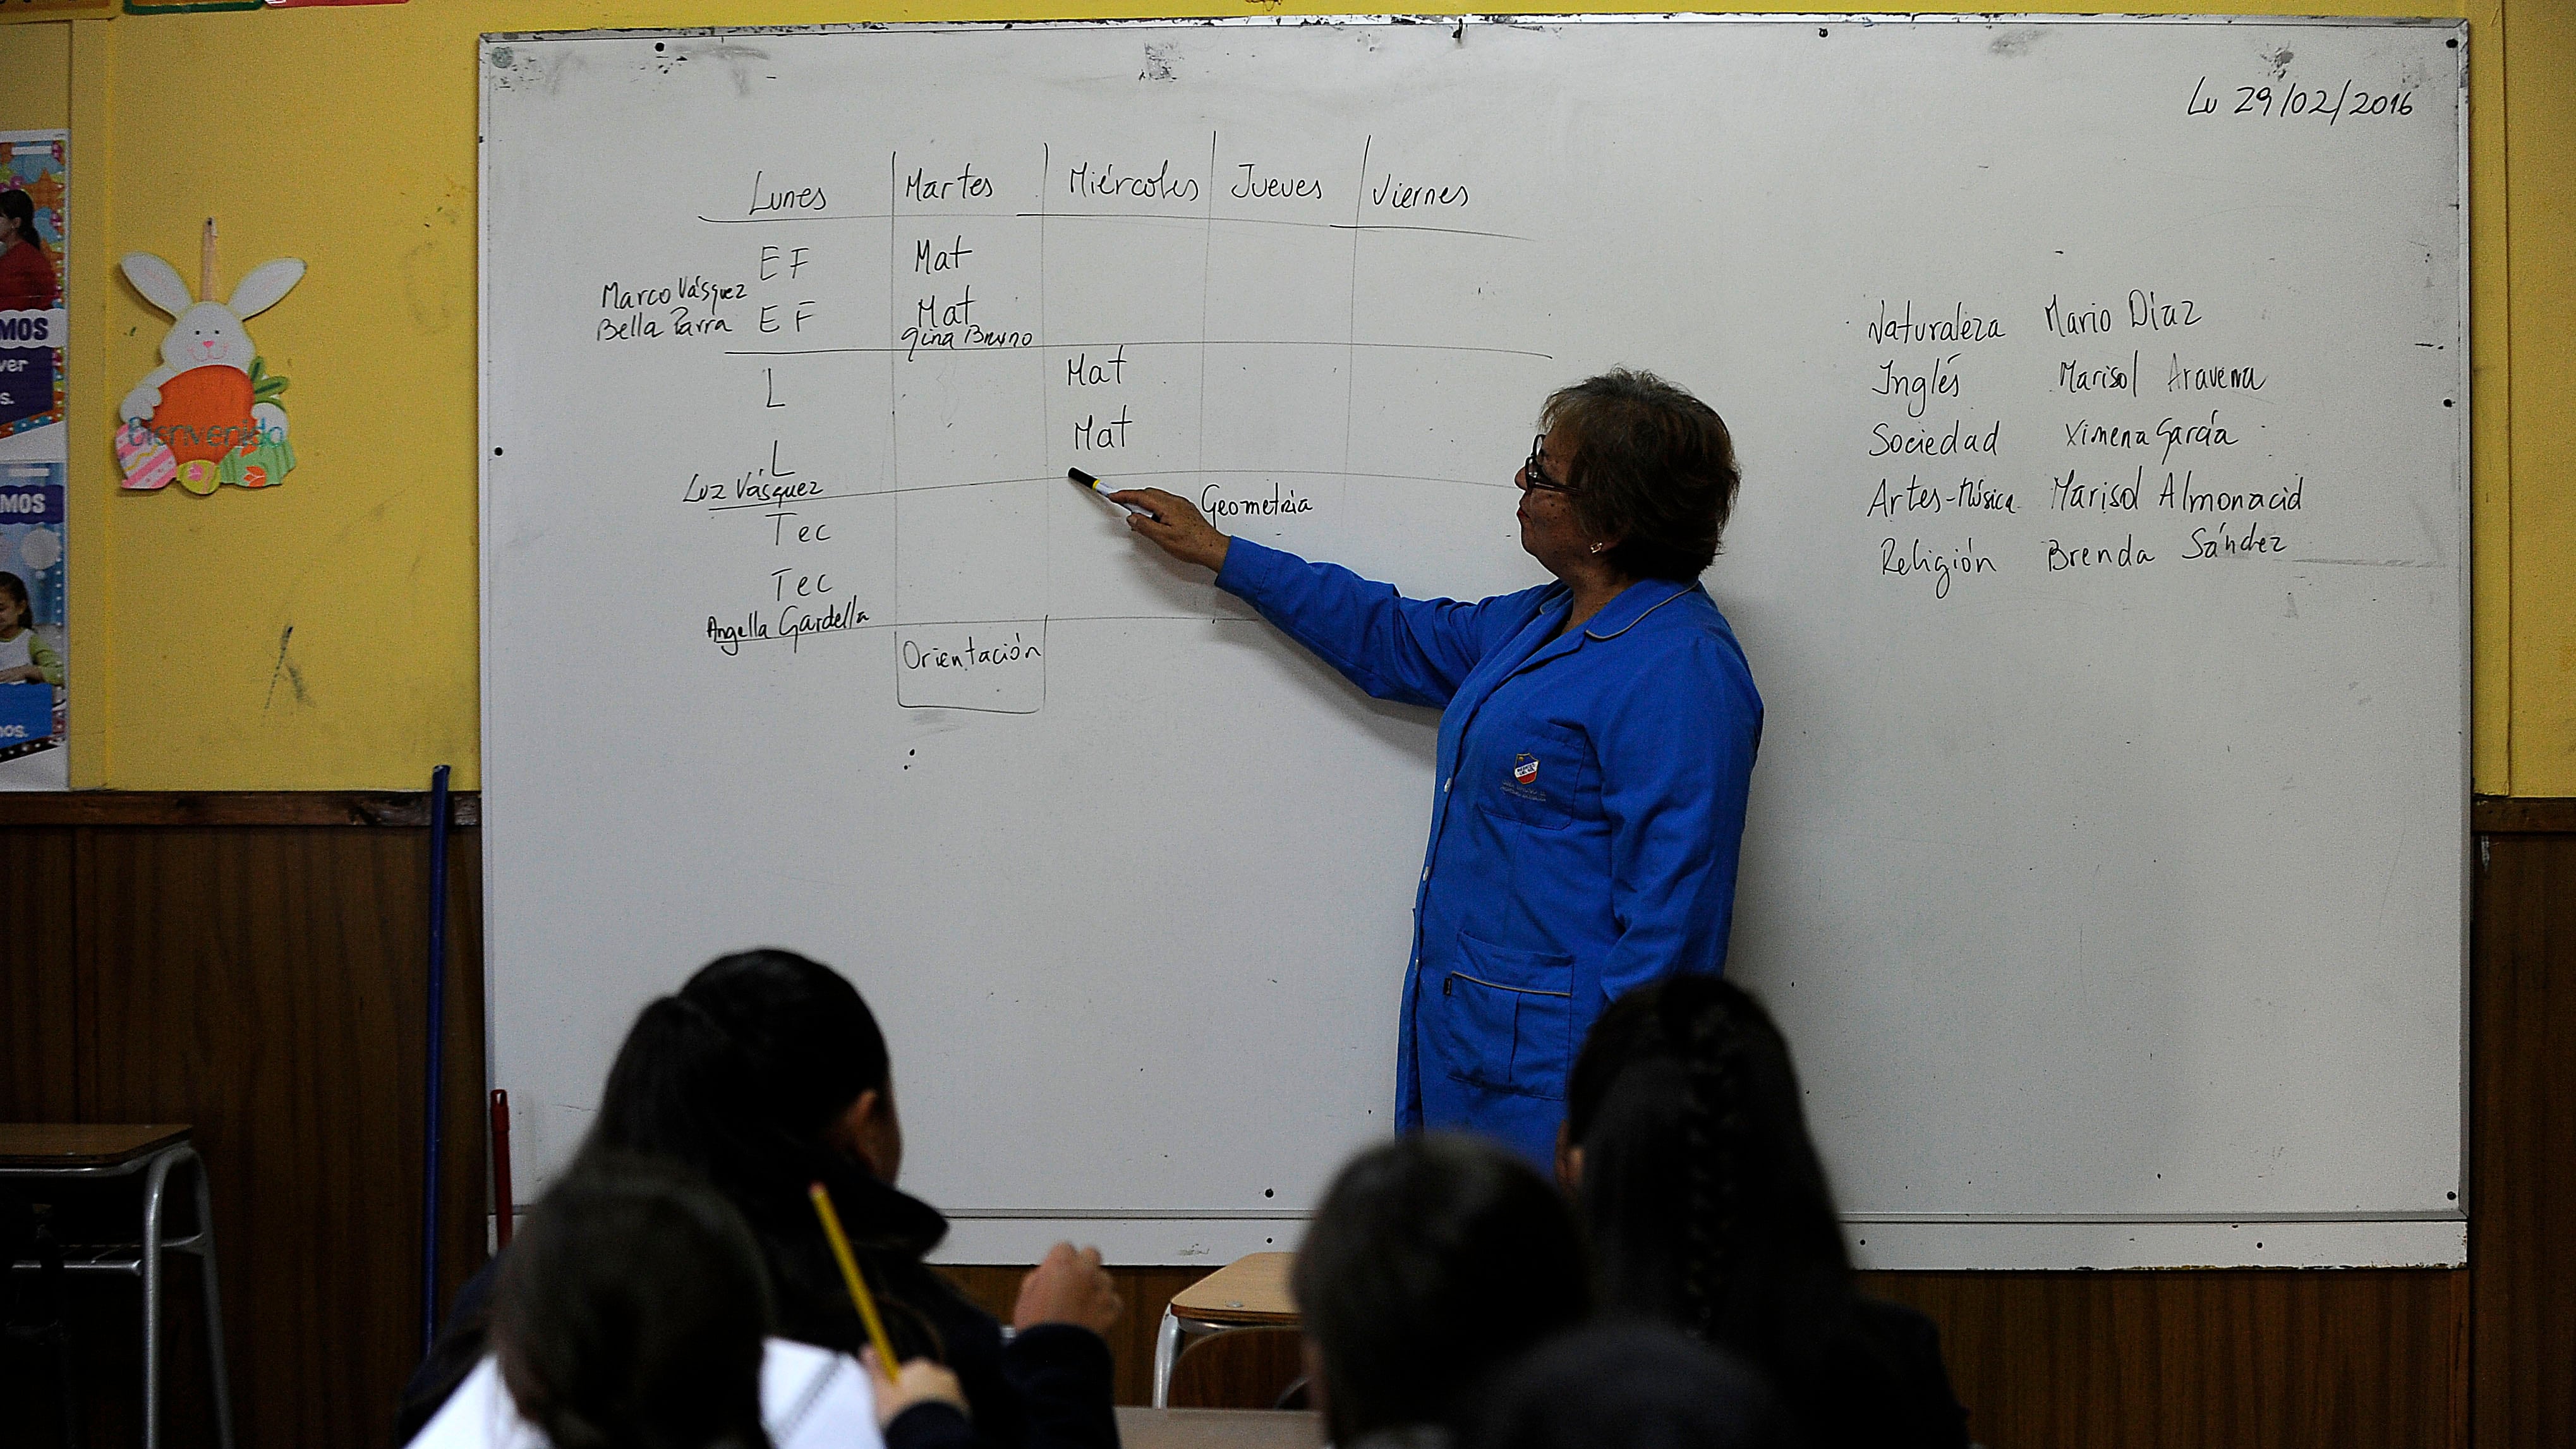 Lu 29/02/2016
Lunes Martes Miércoles Jueves Viernes
EF Mat
Marco Vásquez
Bella Parra EF Mat
Gina Bruno
L Mat
L Mat
Luz Vásquez
Tec Geometria
Tec
Angella Gardella
Orientación
Naturaleza Mario Díaz
Inglés Marisol Aravena
Sociedad Ximena García
Artes-Música Marisol Almonacid
Religión Brenda Sánchez
Bienvenido
MOS
ver
s.
MOS
nos.